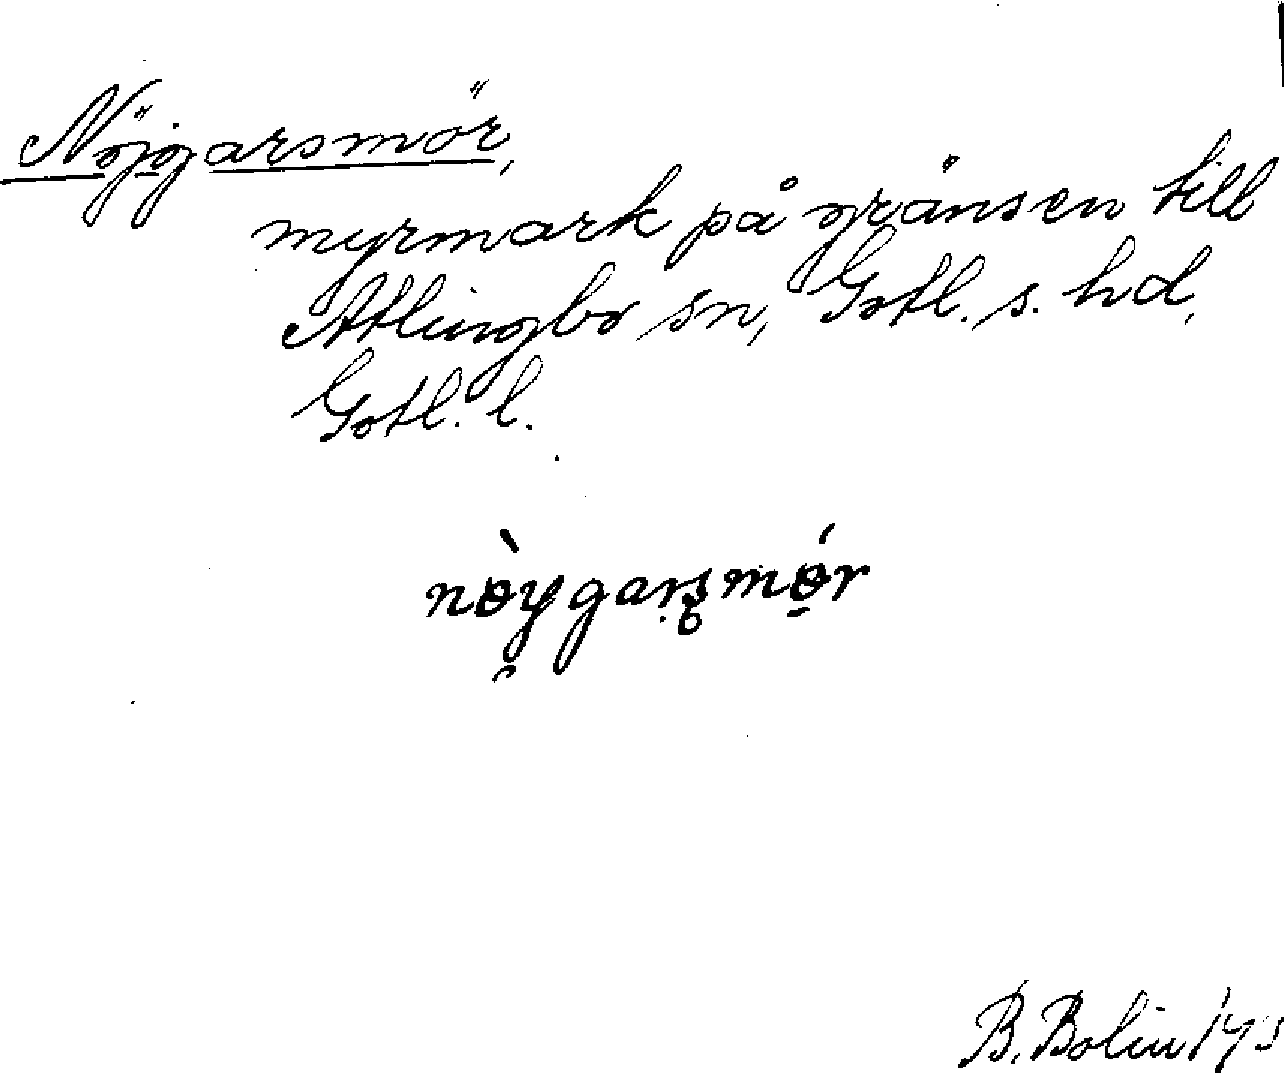 Nöjgarsmör,
myrmark på gränsen till
Atlingbo sn, Gotl. s. hd,
Gotl. l.
nɵ̀ygarsmɵ́r
B. Bolin